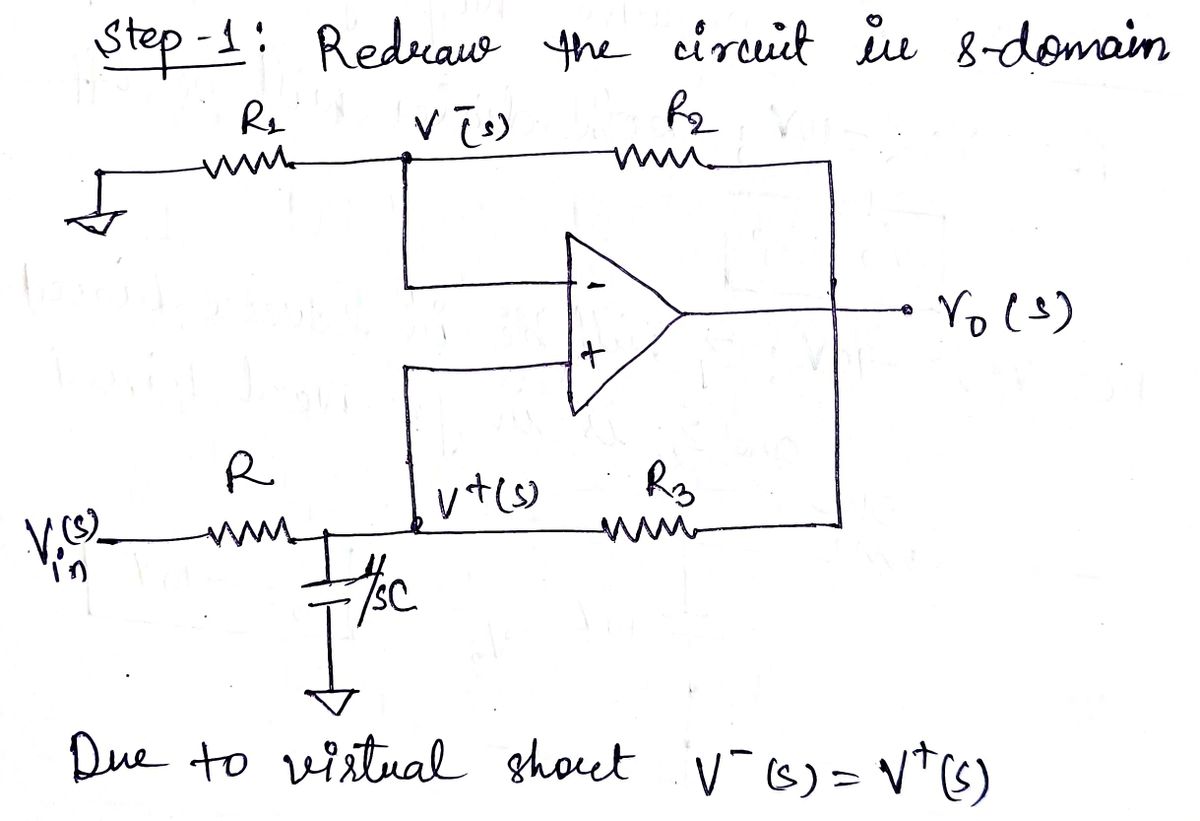 Step-1: Redraw the circuit in s-domain
R1 V⁻(s) R2
-
V0(s)
+
R V⁺(s) R3
Vin(s)
1/sC
Due to virtual short V⁻(s) = V⁺(s)